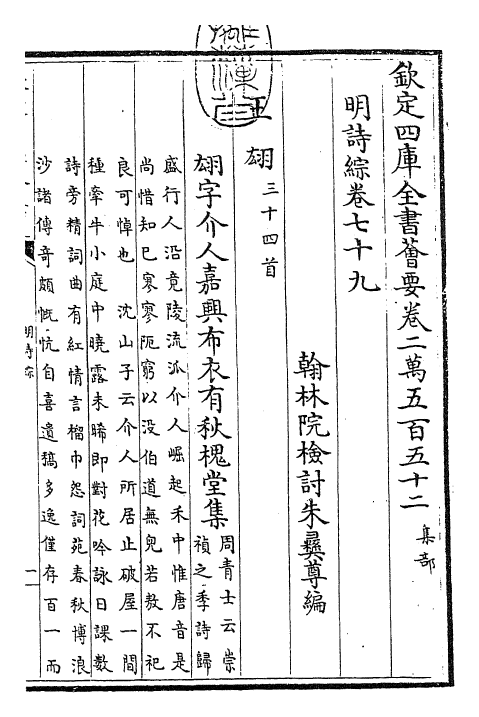 欽定四庫全書薈要卷二萬五百五十二 集部
明詩綜卷七十九
翰林院檢討朱彝尊編
王翃三十四首
翃字介人嘉興布衣有秋槐堂集 周青士云崇
禎之季詩歸
盛行人沿竟陵流派介人崛起禾中惟唐音是
尚惜知已寥寥阨窮以没伯道無兒若敖不祀
良可悼也 沈山子云介人所居止破屋一間
種牽牛小庭中曉露未晞即對花吟詠日課數
詩旁精詞曲有紅情言榴巾怨詞苑春秋博浪
沙諸傳奇頗慨忼自喜遺稿多逸僅存百一而
明詩綜
一